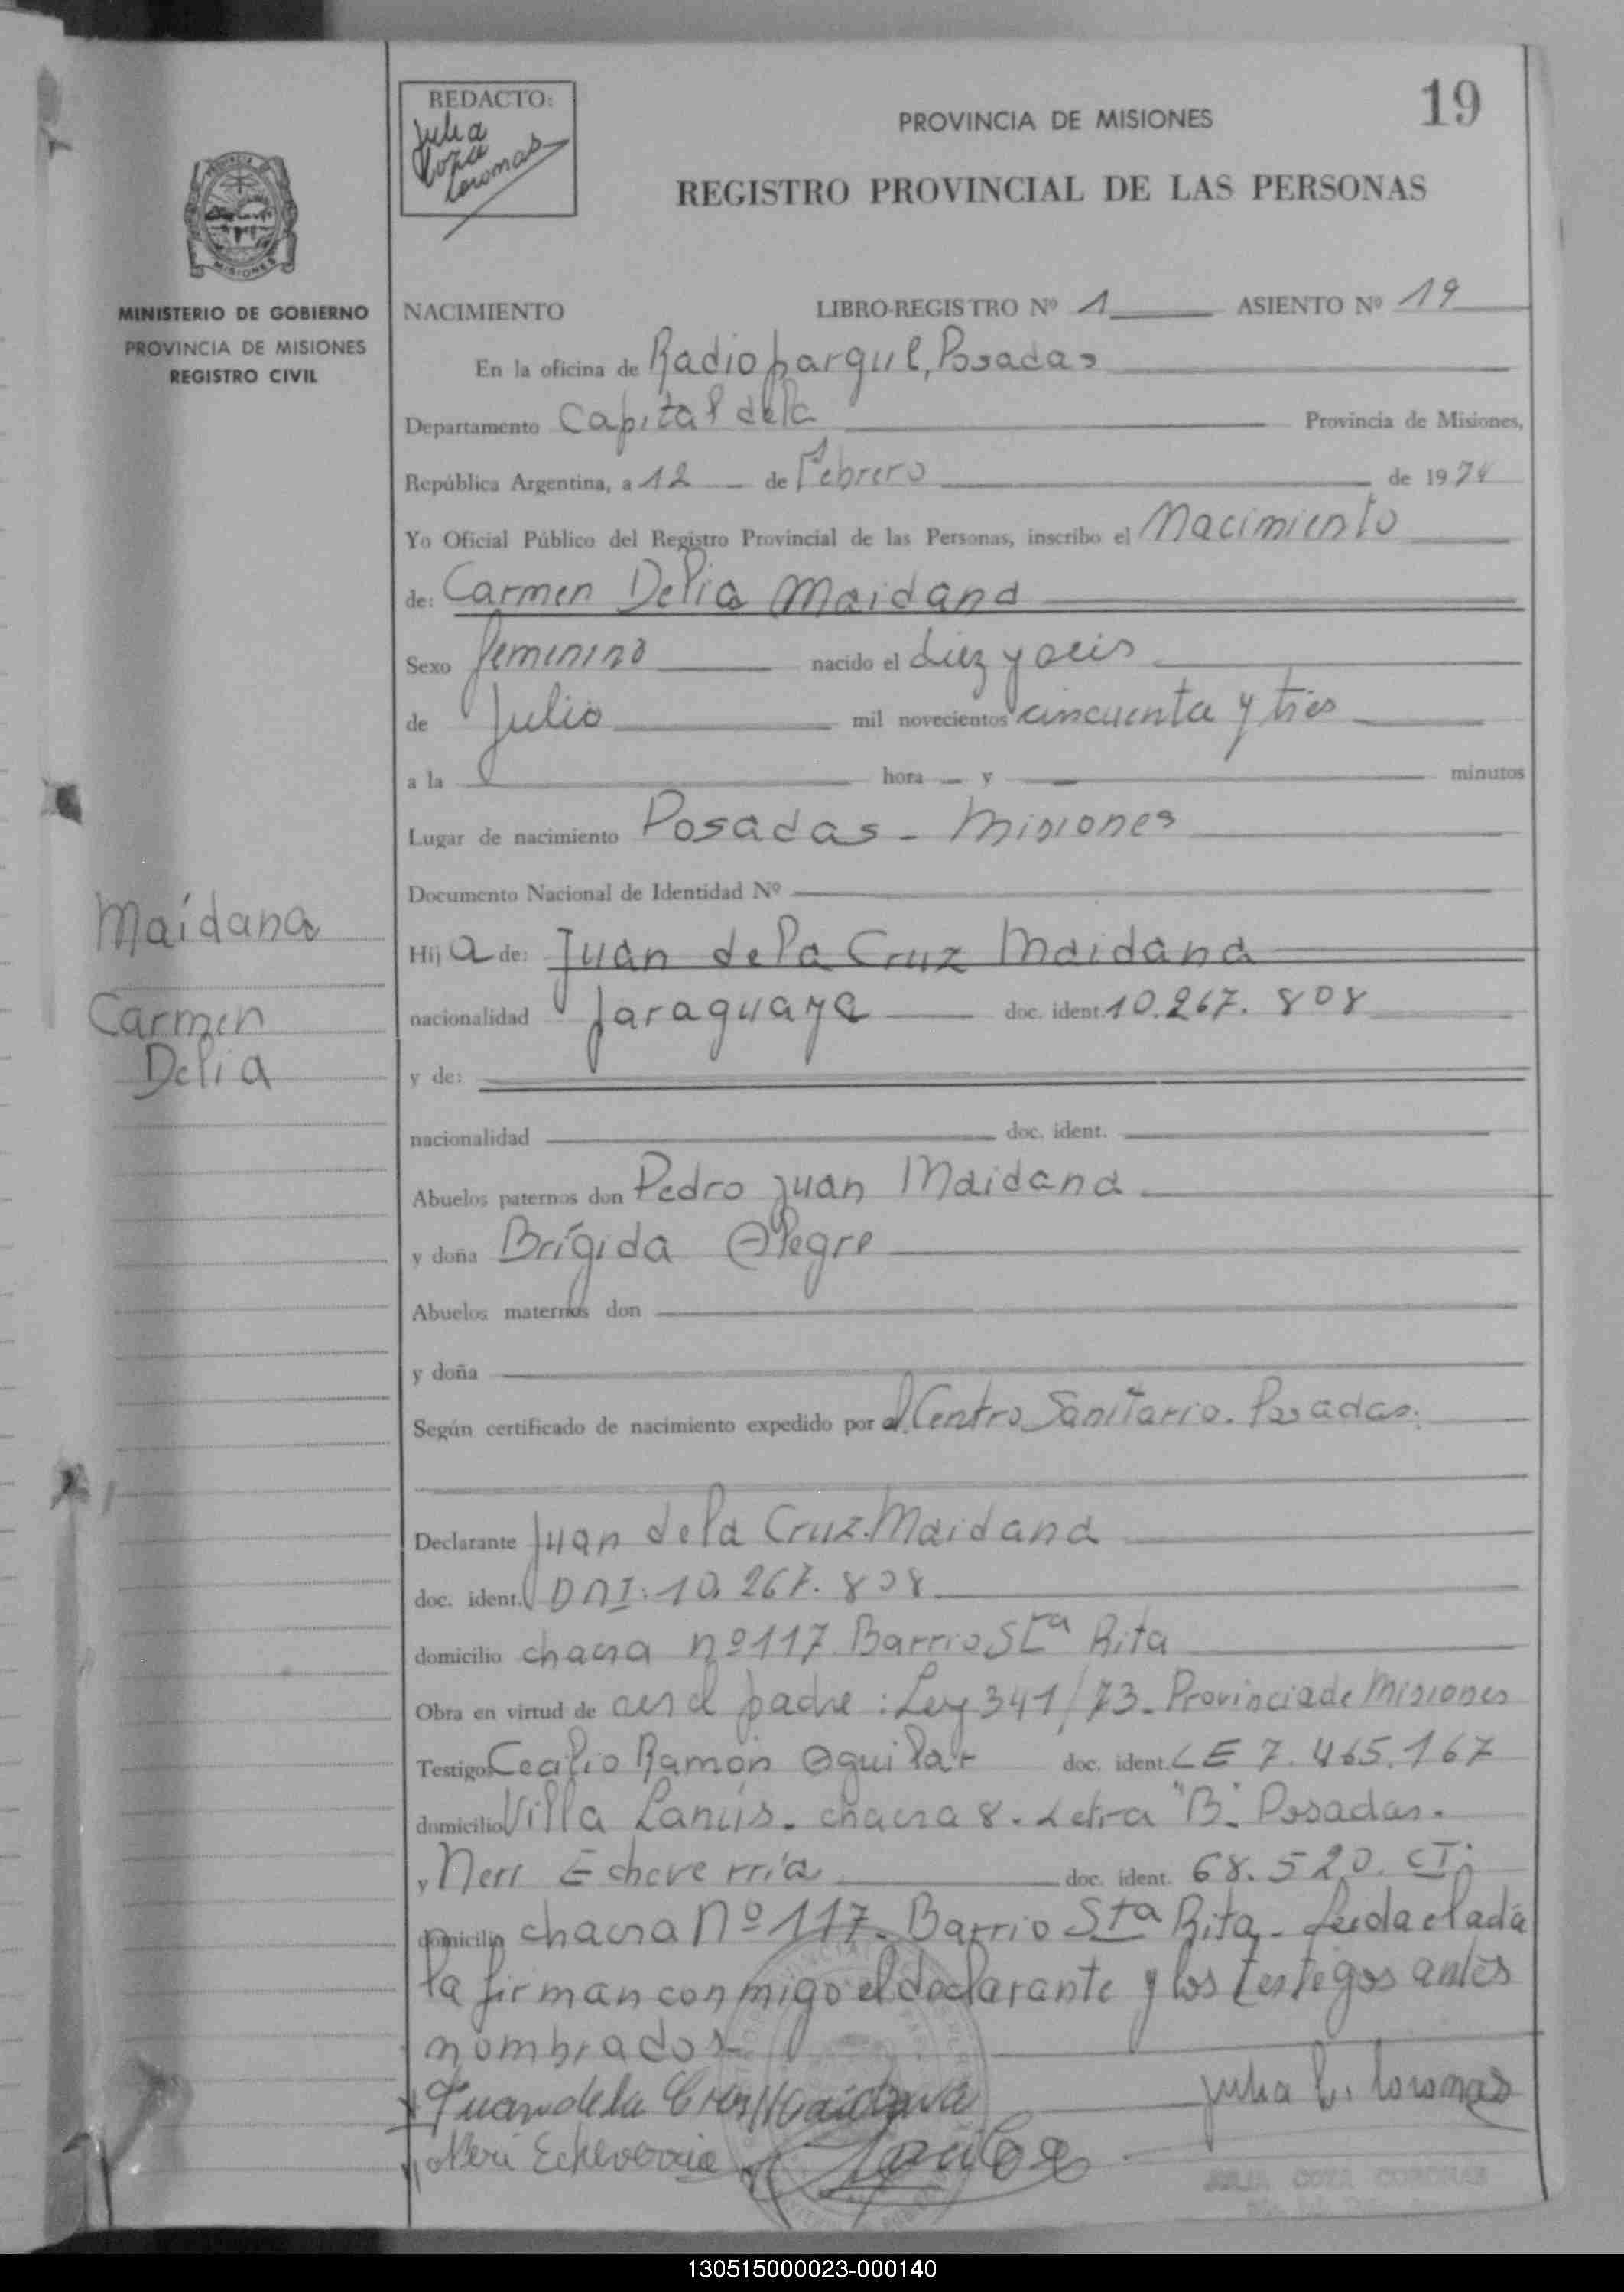 REDACTO:
Julia
Coza
Coromas
PROVINCIA DE MISIONES
19
REGISTRO PROVINCIAL DE LAS PERSONAS
PROVINCIA
MISIONES
MINISTERIO DE GOBIERNO
PROVINCIA DE MISIONES
REGISTRO CIVIL
NACIMIENTO LIBRO-REGISTRO Nº 1 ASIENTO Nº 19
En la oficina de Radioparque, Posadas
Departamento Capital dela Provincia de Misiones,
República Argentina, a 12 de Febrero de 1974
Yo Oficial Público del Registro Provincial de las Personas, inscribo el Nacimiento
de: Carmen Delia Maidana
Sexo femenino nacido el diez y seis
de Julio mil novecientos cincuenta y tres
a la hora y minutos
Lugar de nacimiento Posadas - Misiones
Documento Nacional de Identidad Nº
Maidana
Carmen
Delia
Hij a de: Juan dela Cruz Maidana
nacionalidad paraguaya doc. ident. 10.267.808
y de:
nacionalidad doc. ident.
Abuelos paternos don Pedro Juan Maidana
y doña Brígida Alegre
Abuelos maternos don
y doña
Según certificado de nacimiento expedido por el Centro Sanitario. Posadas.
Declarante Juan dela Cruz Maidana
doc. ident. DNI: 10.267.808
domicilio chacra nº 117 Barrio Sta Rita
Obra en virtud de ser el padre: Ley 341/73 - Provincia de Misiones
Testigos Cecilio Ramón Aguilar doc. ident. LE 7.465.167
domicilio Villa Lanús - chacra 8 - Letra "B". Posadas.
y Neri Echeverría doc. ident. 68.520. CI.
domicilio chacra Nº 117 - Barrio Sta Rita - Leida el acta
la firman conmigo el declarante y los testigos antes
nombrados
Juan de la Cruz Maidana
Julia C. Coromas
Neri Echeverria
JULIA COZA COROMAS
130515000023-000140